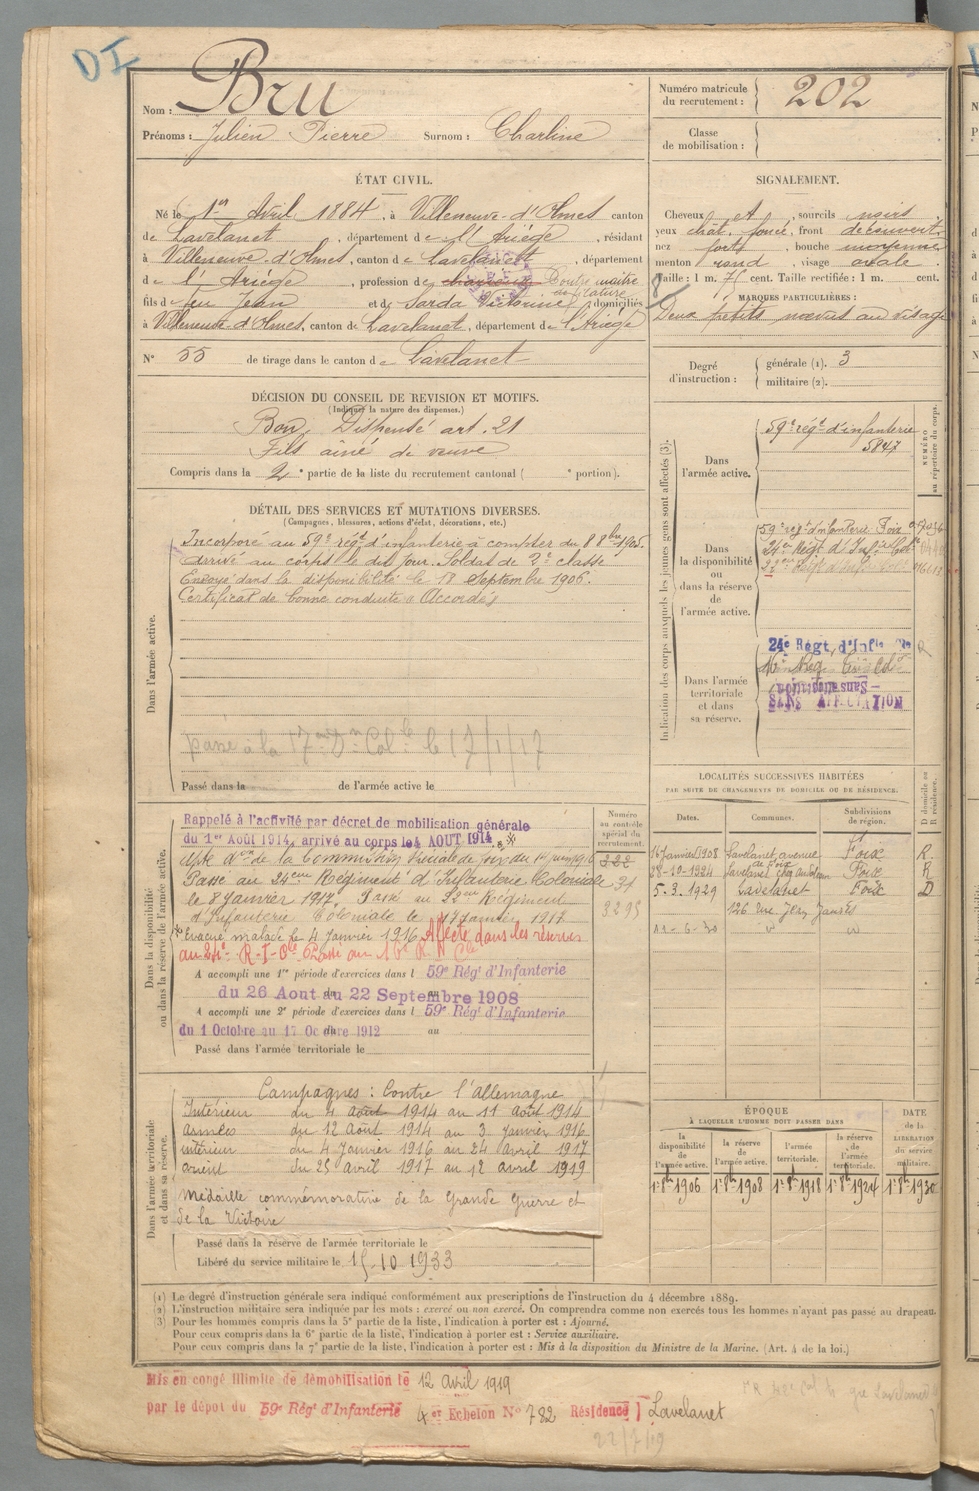 DI
Nom : Bru
Prénoms : Julien Pierre Surnom : Charline
Numéro matricule du recrutement : 202
Classe de mobilisation :
ÉTAT CIVIL.
Né le 1er Avril 1884, à Villeneuve-d'Olmes canton
de Lavelanet, département de l'Ariège, résidant
à Villeneuve-d'Olmes, canton de Lavelanet, département
de l'Ariège, profession de Contre maitre de filature
fils de feu Jean et de Sarda Victorine, domiciliés
à Villeneuve-d'Olmes, canton de Lavelanet, département de l'Ariège
N° 55 de tirage dans le canton de Lavelanet
SIGNALEMENT.
Cheveux et, sourcils noirs
yeux chât. foncé, front découvert
nez fort, bouche moyenne
menton rond, visage ovale.
Taille : 1 m. 75 cent. Taille rectifiée : 1 m. cent.
MARQUES PARTICULIÈRES :
Deux petits nœvus au visage
Degré d'instruction : générale (1). 3
militaire (2).
DÉCISION DU CONSEIL DE REVISION ET MOTIFS.
(Indiquer la nature des dispenses.)
Bon, Dispensé art. 21
Fils aîné de veuve
Compris dans la 2e partie de la liste du recrutement cantonal ( e portion).
DÉTAIL DES SERVICES ET MUTATIONS DIVERSES.
(Campagnes, blessures, actions d'éclat, décorations, etc.)
Dans l'armée active.
Incorporé au 59e régt d'infanterie à compter du 8 8bre 1905.
Arrivé au corps le dit jour. Soldat de 2e classe
Envoyé dans la disponibilité le 18 Septembre 1906.
Certificat de bonne conduite « Accordé »
passé à la 17 Don Colle le 17/1/17
Passé dans la de l'armée active le
Indication des corps auxquels les jeunes gens sont affectés (3).
NUMÉRO au répertoire du corps.
Dans l'armée active.
59e régt d'infanterie
5847
Dans la disponibilité ou dans la réserve de l'armée active.
59e régt d'infanterie Foix
24e Régt d'Infie Colle
22eme Régt d'Infie Colle
Dans l'armée territoriale et dans sa réserve.
24e Régt d'Infie Cle R
SANS AFFECTATION
LOCALITÉS SUCCESSIVES HABITÉES
PAR SUITE DE CHANGEMENTS DE DOMICILE OU DE RÉSIDENCE.
Dates. Communes. Subdivisions de région. D domicile ou R résidence.
16 Janvier 1908 Lavelanet, avenue de Foix Foix R.
28-10-1924 Lavelanet Foix R
5.3.1929 Lavelanet Foix D
126 rue Jean Jaurès
11-6-30 " "
Dans la disponibilité ou dans la réserve de l'armée active.
Numéro au contrôle spécial du recrutement.
Rappelé à l'activité par décret de mobilisation générale
du 1er Août 1914, arrivé au corps le 4 AOUT 1914
Apte don de la Commission Spéciale de Foix du 1er juin 1916
Passé au 24eme Régiment d'Infanterie Coloniale
le 8 Janvier 1917. Passé au 22eme Régiment
d'Infanterie Coloniale le 17 Janvier 1917
Evacué malade le 4 Janvier 1916 Affecté dans les réserves
au 24e R-I-Cle Passé au 16e
222
31
3295
A accompli une 1re période d'exercices dans l 59e Régt d'Infanterie
du 26 Aout au 22 Septembre 1908
A accompli une 2e période d'exercices dans l 59e Régt d'Infanterie
du 1 Octobre au 17 Octobre 1912 au
Passé dans l'armée territoriale le
Dans l'armée territoriale et dans sa réserve.
Campagnes : Contre l'Allemagne
Intérieur du 4 août 1914 au 11 Août 1914
Armées du 12 Août 1914 au 3 Janvier 1916
intérieur du 4 Janvier 1916 au 24 Avril 1917
orient du 25 avril 1917 au 12 avril 1919
Médaille commémorative de la Grande Guerre et
de la Victoire
Passé dans la réserve de l'armée territoriale le
Libéré du service militaire le 15-10 1933
ÉPOQUE
À LAQUELLE L'HOMME DOIT PASSER DANS
la disponibilité de l'armée active. la réserve de l'armée active. l'armée territoriale. la réserve de l'armée territoriale. DATE de la LIBÉRATION du service militaire.
1er 8bre 1906 1er 8bre 1908 1er 8bre 1918 1er 8bre 1924 1er 8bre 1930
(1) Le degré d'instruction générale sera indiqué conformément aux prescriptions de l'instruction du 4 décembre 1889.
(2) L'instruction militaire sera indiquée par les mots : exercé ou non exercé. On comprendra comme non exercés tous les hommes n'ayant pas passé au drapeau.
(3) Pour les hommes compris dans la 5e partie de la liste, l'indication à porter est : Ajourné.
Pour ceux compris dans la 6e partie de la liste, l'indication à porter est : Service auxiliaire.
Pour ceux compris dans la 7e partie de la liste, l'indication à porter est : Mis à la disposition du Ministre de la Marine. (Art. 4 de la loi.)
Mis en congé illimité de démobilisation le 12 Avril 1919
par le dépot du 59e Régt d'Infanterie 4er Echelon N° 782 Résidence Lavelanet
22/7/19